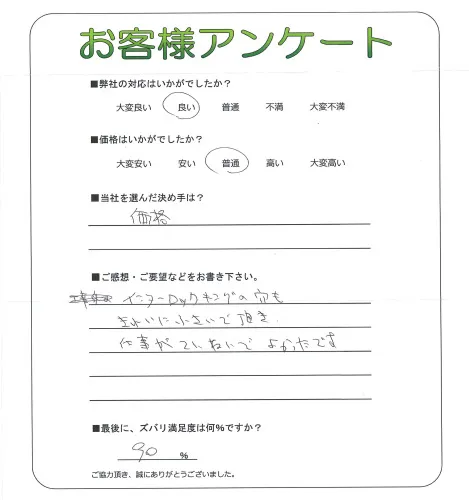 お客様アンケート
■弊社の対応はいかがでしたか?
大変良い 良い 普通 不満 大変不満
■価格はいかがでしたか?
大変安い 安い 普通 高い 大変高い
■当社を選んだ決め手は?
価格
■ご感想・ご要望などをお書き下さい。
インターロッキングの穴も
きれいに小さいで頂き
仕事がていねいでよかったです
■最後に、ズバリ満足度は何%ですか?
90 %
ご協力頂き、誠にありがとうございました。